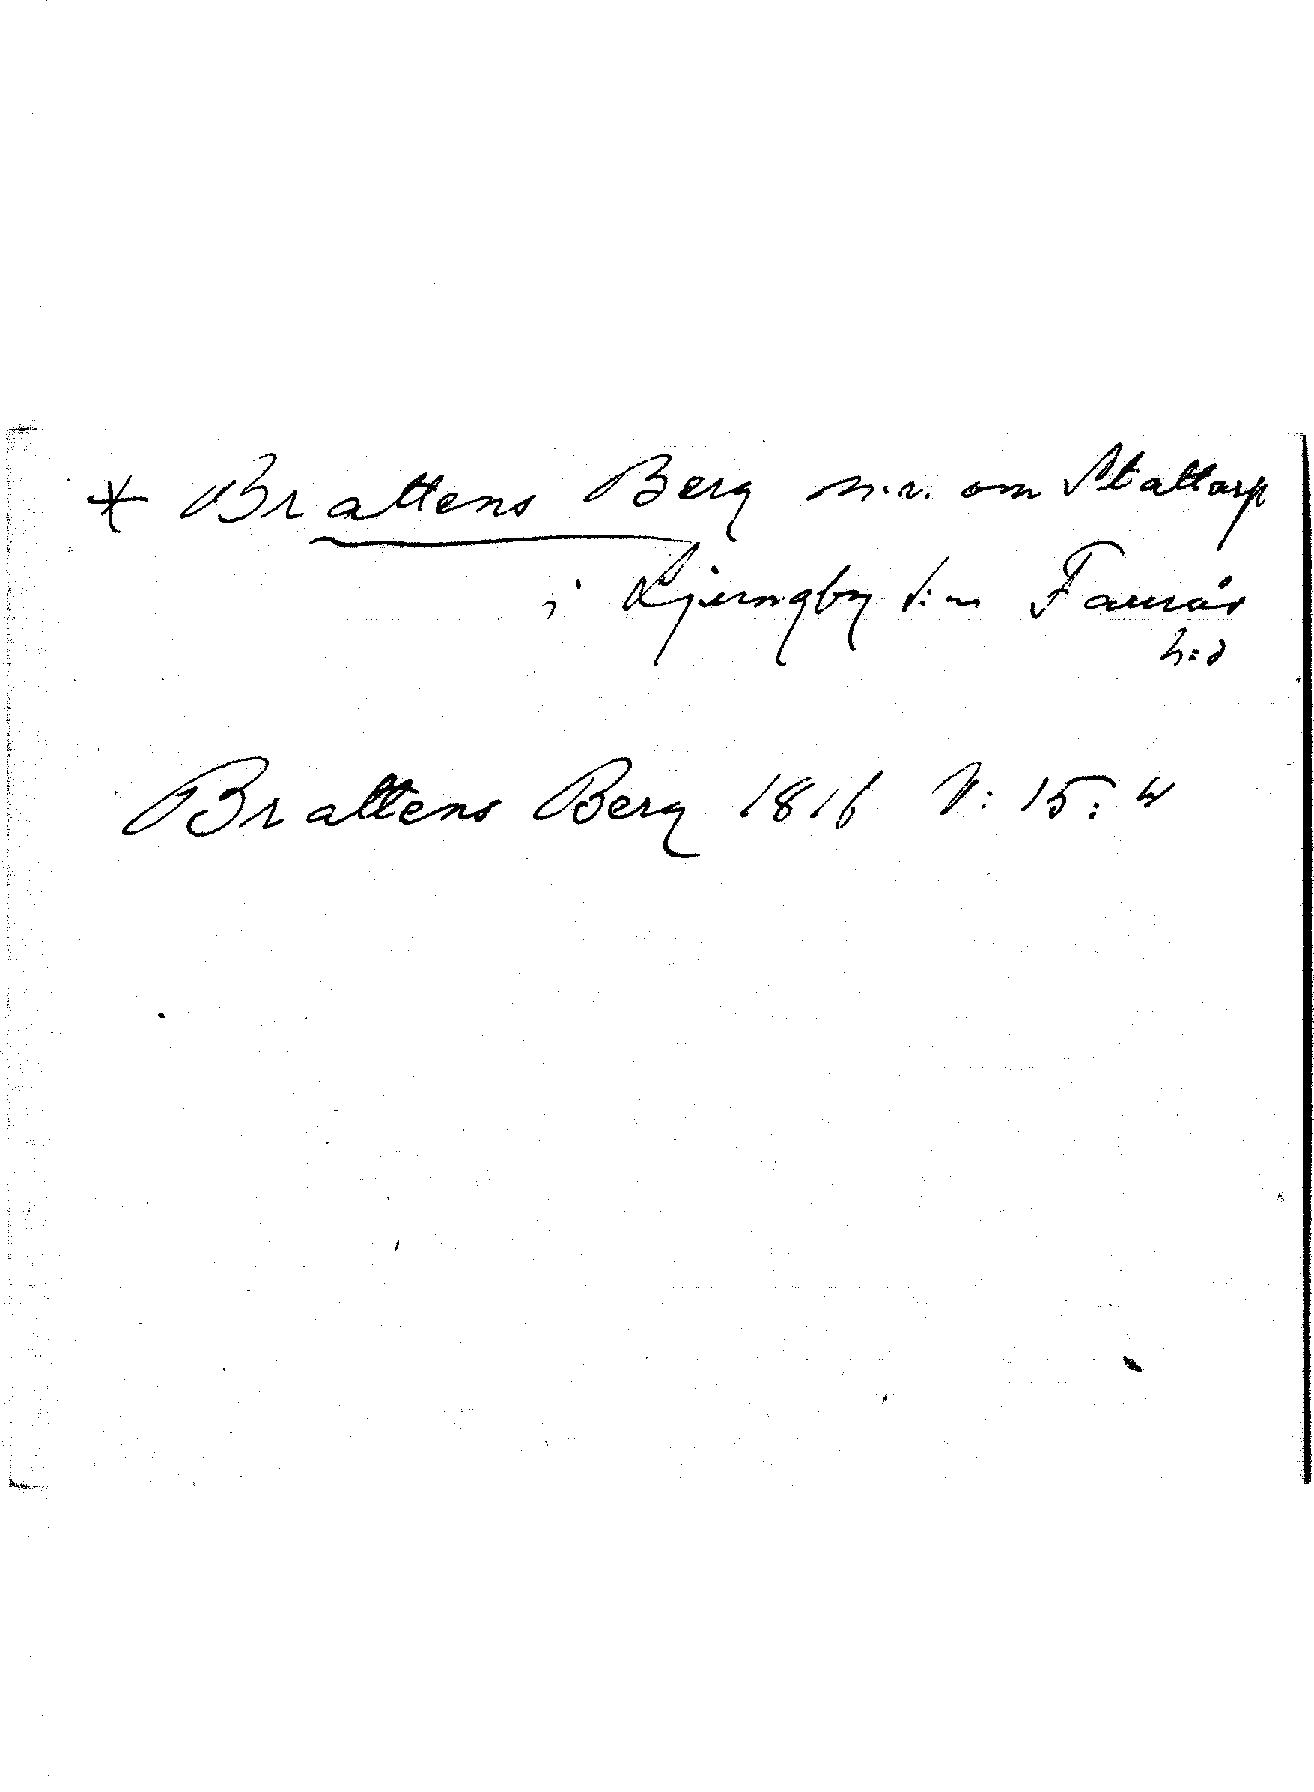 * Brattens Berg n.v. om Stattarp
i Ljungby s:n Faurås
h:d
Brattens Berg 1816 N: 15: w